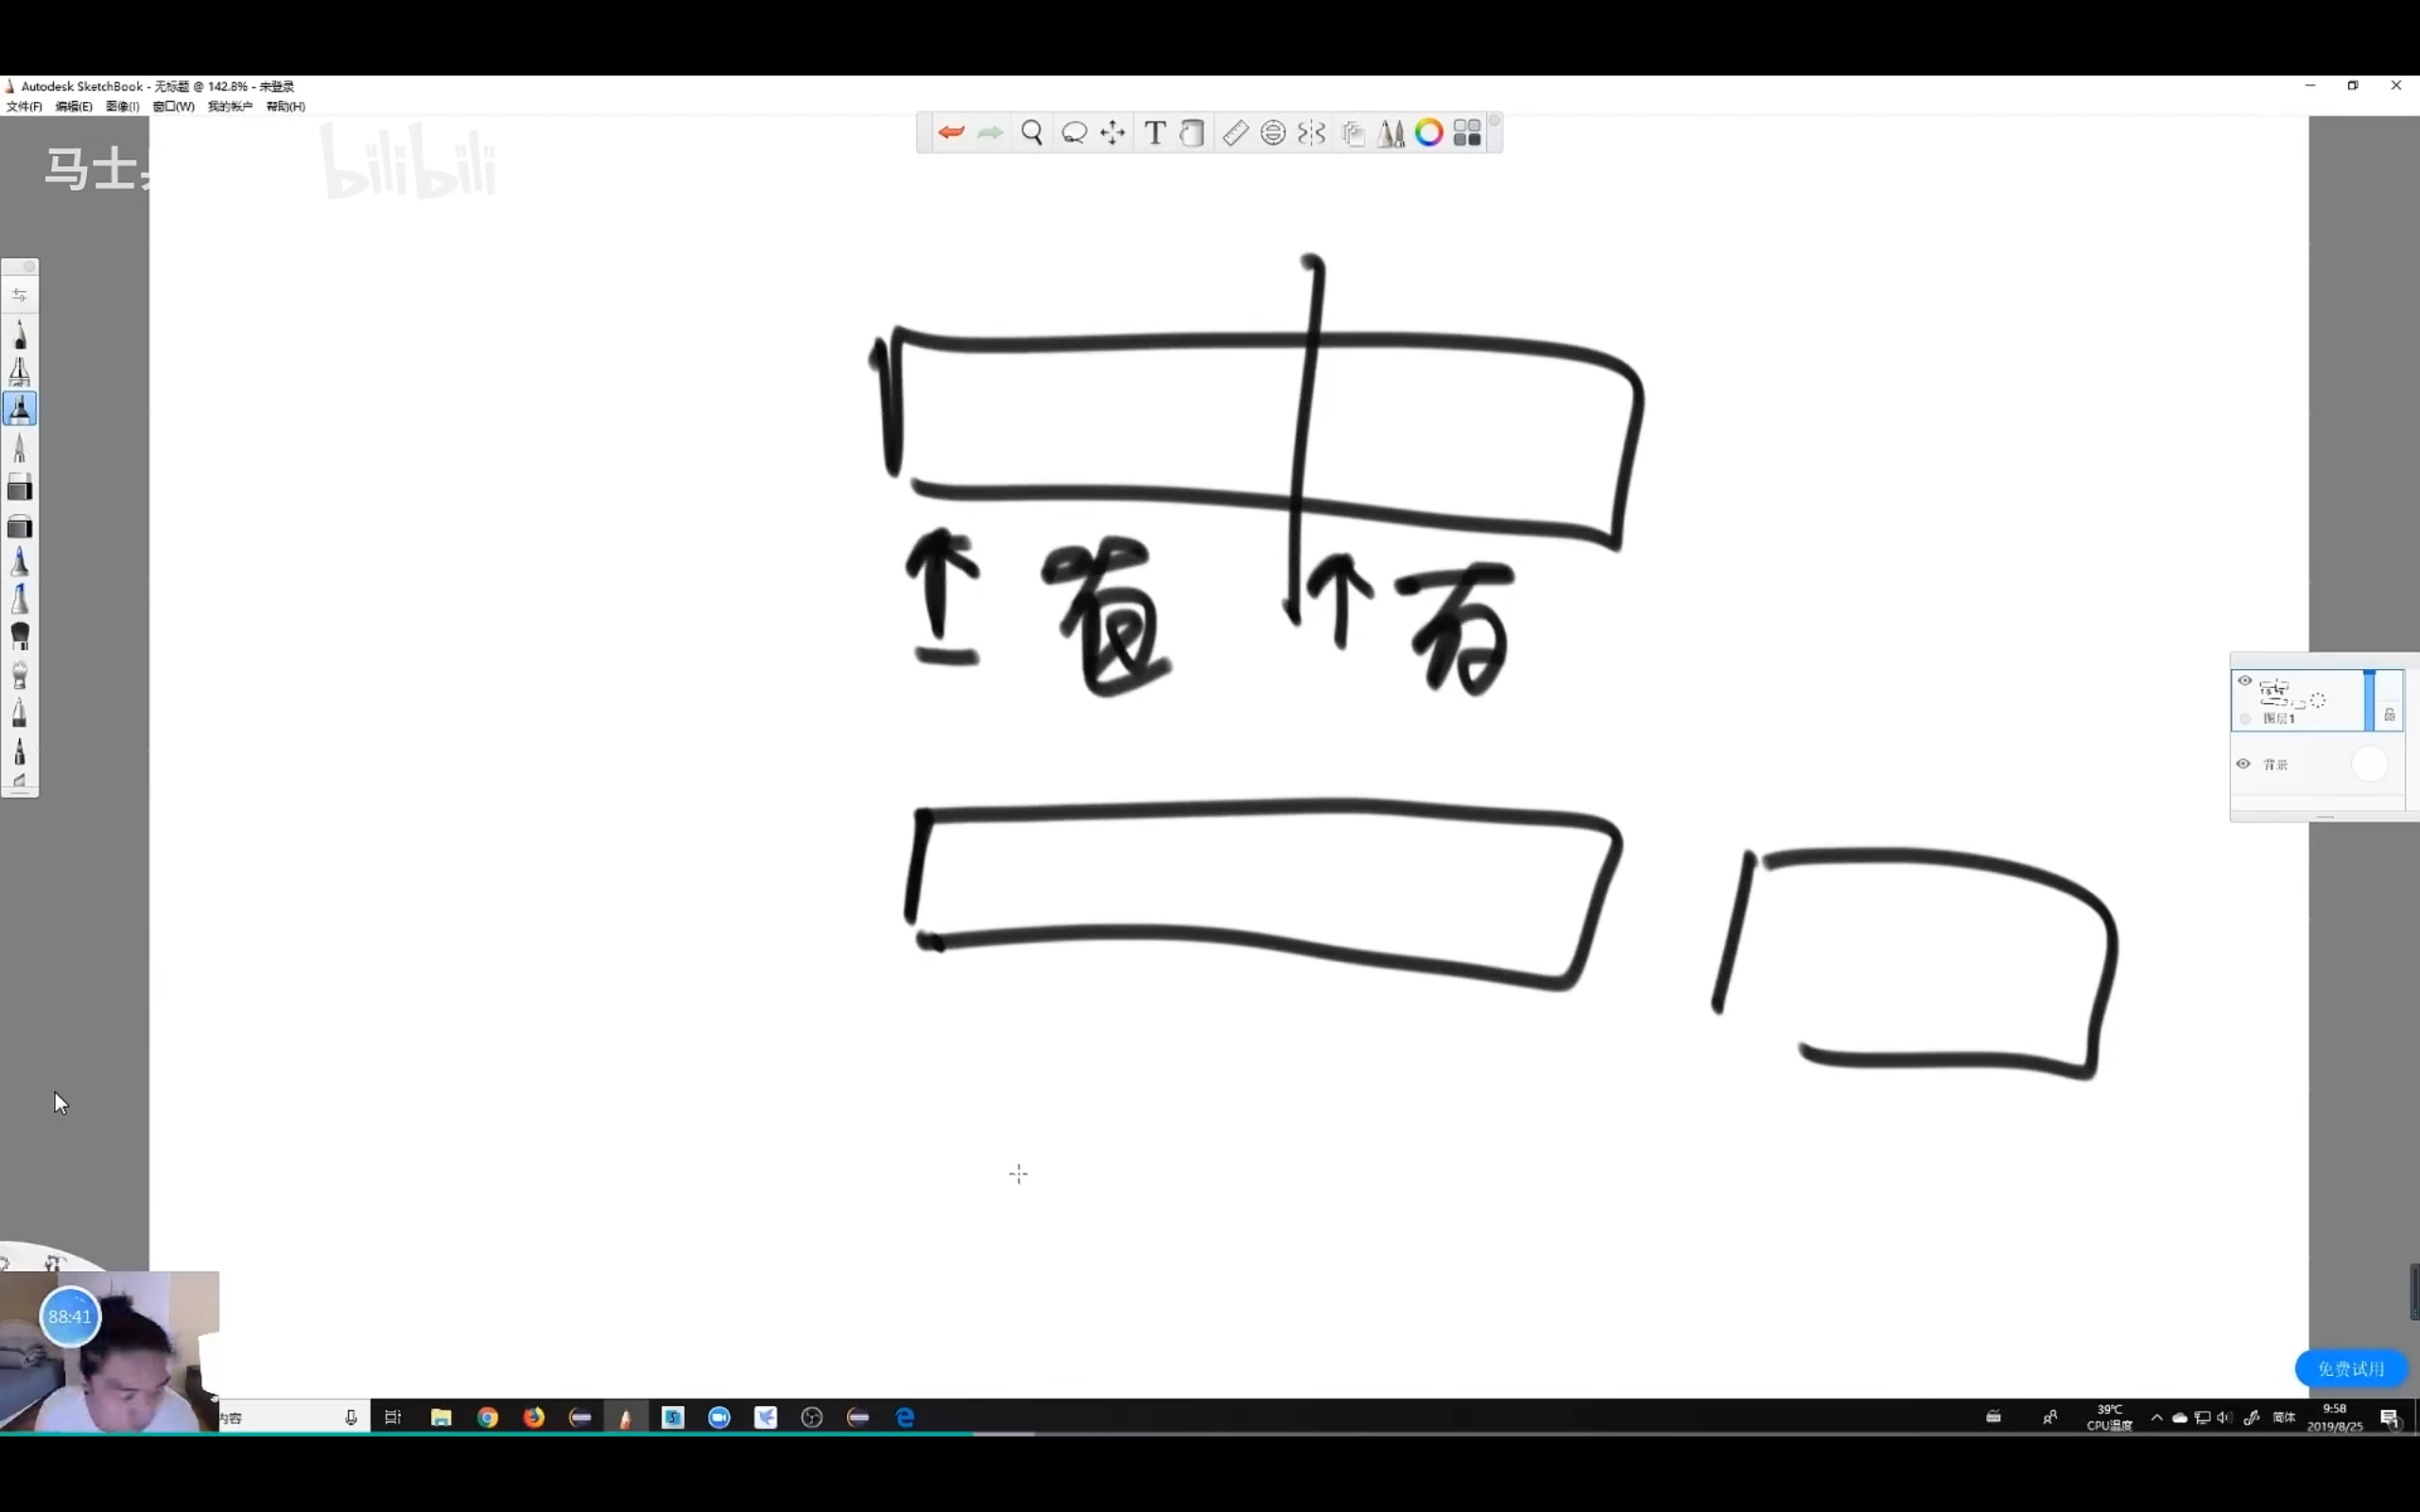 Autodesk SketchBook - 无标题 @ 142.8% - 未登录
文件(F) 编辑(E) 图像(I) 窗口(W) 我的帐户 帮助(H)
马士
bilibili
T
图层1
背景
88:41
免费试用
内容
39℃
CPU温度
简体
9:58
2019/8/25
1